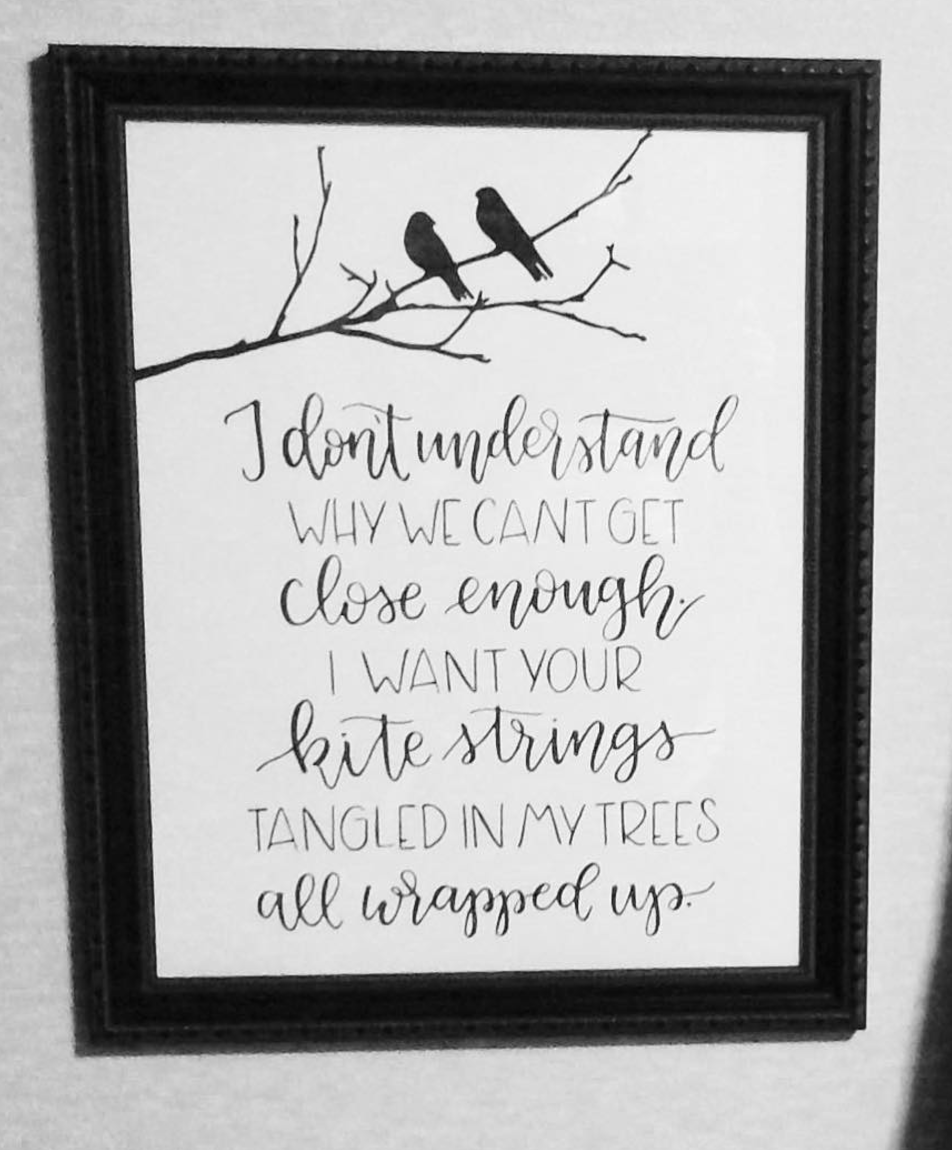 I don't understand
WHY WE CANT GET
close enough.
I WANT YOUR
kite strings
TANGLED IN MY TREES
all wrapped up.